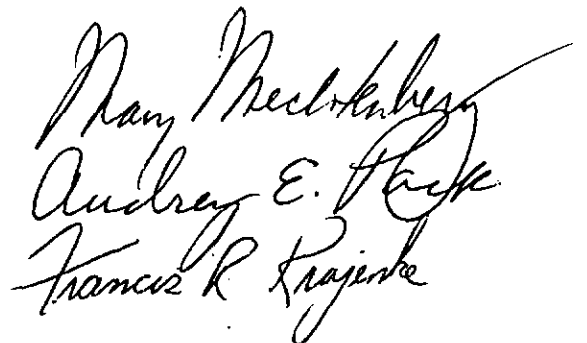 Mary Mecklenberg
Audrey E. Pack
Francis R Krajenke